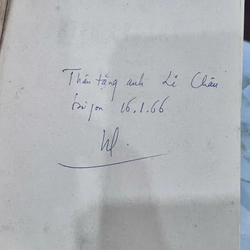 Thân tặng anh Lê Châu
Saigon 16.1.66